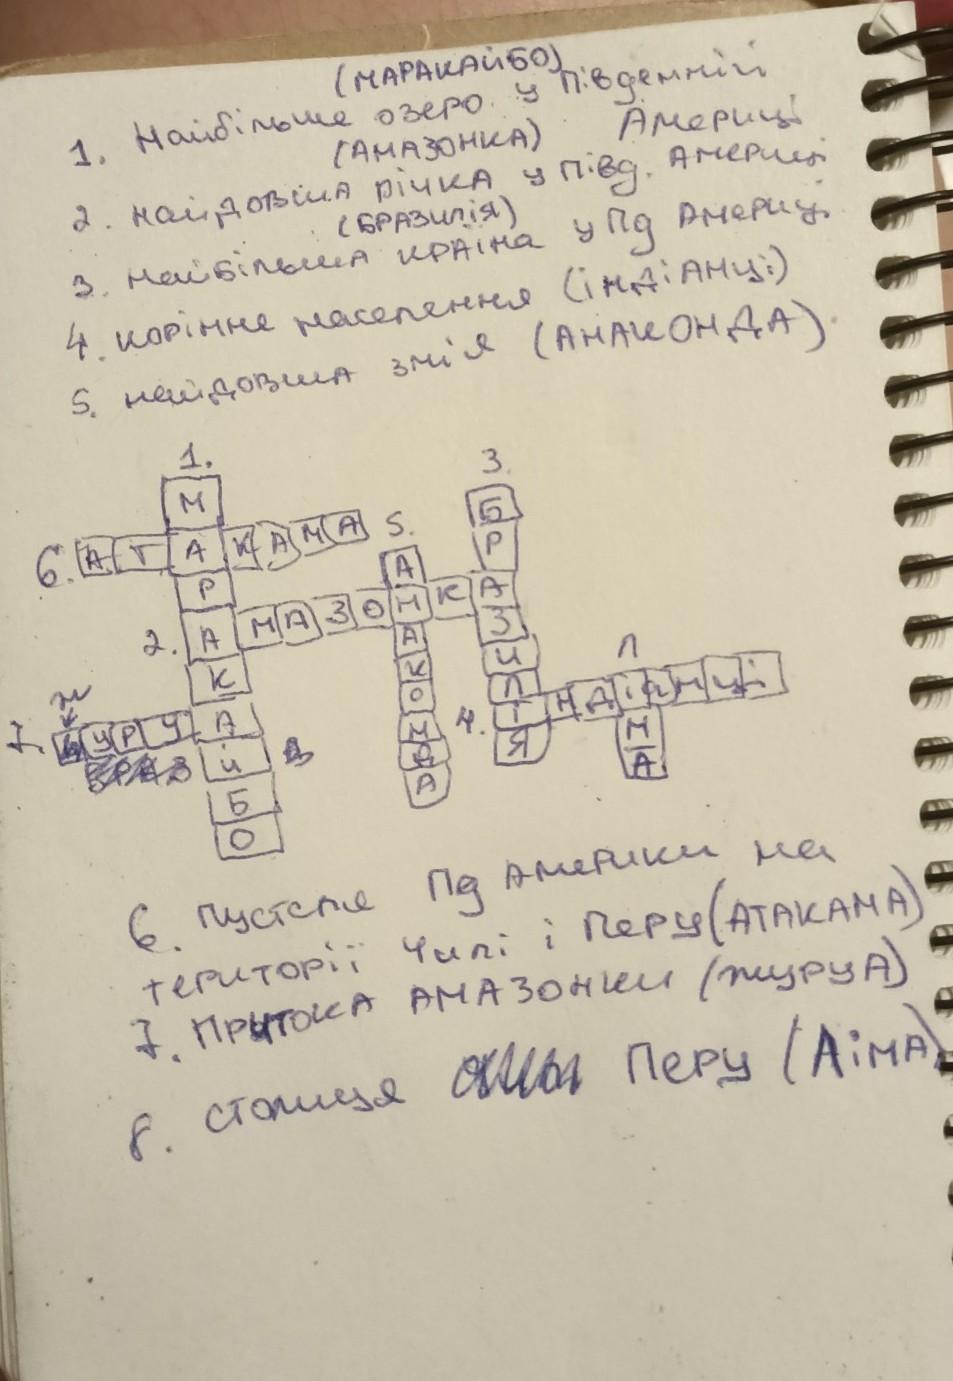 (МАРАКАЙБО)
1. Найбільше озеро у Південній
Америці
(АМАЗОНКА)
2. найдовша річка у півд. Америці
(БРАЗИЛІЯ)
3. найбільша країна у Пд Америці
4. корінне населення (індіАНці)
5. найдовша змія (АНАКОНДА)
1.
3.
М
Б
6. АТАКАМА
5.
Р
А
Р
2. АМАЗОНКА
А
З
К
А
И
Л
К
Л
О
4. ІНДІАНЦІ
ж
7. ЖУРУА
Н
Я
М
Й
Д
А
Б
А
О
6. Пустеля Пд Америки на
території Чилі і Перу (АТАКАМА)
7. ПРИТОКА АМАЗОНКИ (журуА)
8. столиця Перу (Ліма)